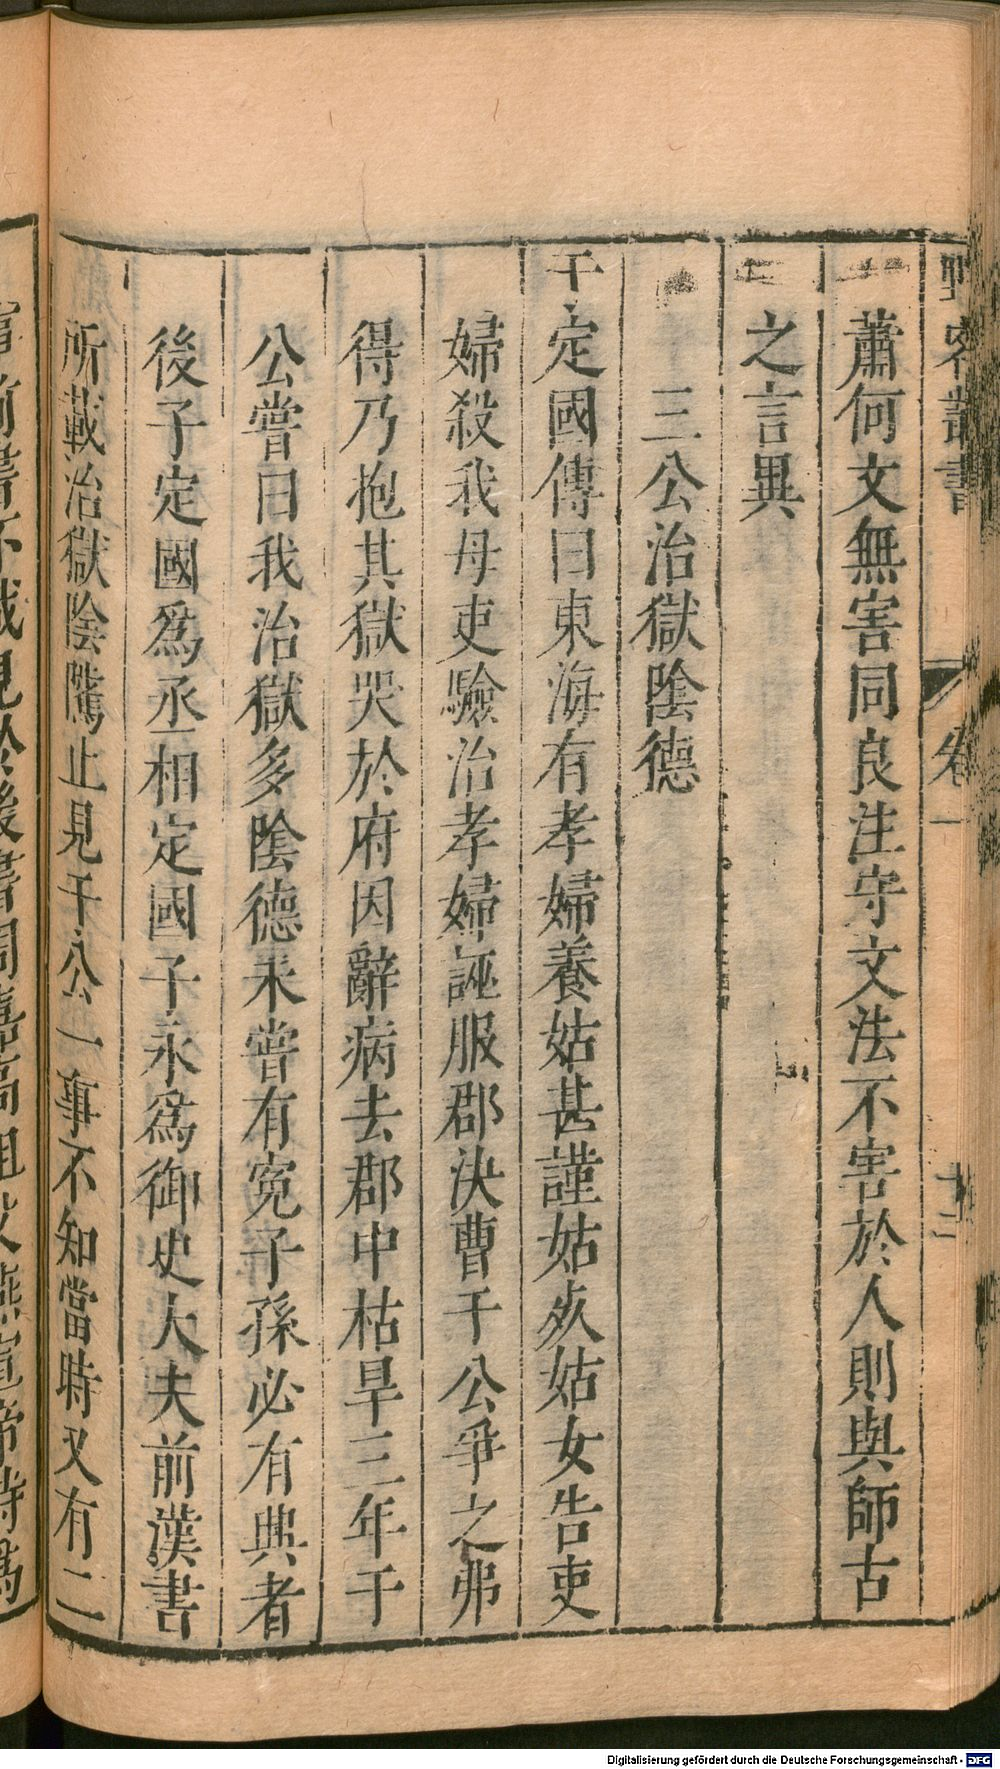 野客叢書 卷一 十二
蕭何文無害同良注守文法不害於人則與師古
之言異
三公治獄陰德
于定國傳曰東海有孝婦養姑甚謹姑死姑女告吏
婦殺我母吏驗治孝婦誣服郡決曹于公爭之弗
得乃抱其獄哭於府因辭病去郡中枯旱三年于
公嘗曰我治獄多陰德未嘗有寃子孫必有興者
後子定國爲丞相定國子永爲御史大夫前漢書
所載治獄陰隲止見于公一事不知當時又有二
Digitalisierung gefördert durch die Deutsche Forschungsgemeinschaft - DFG